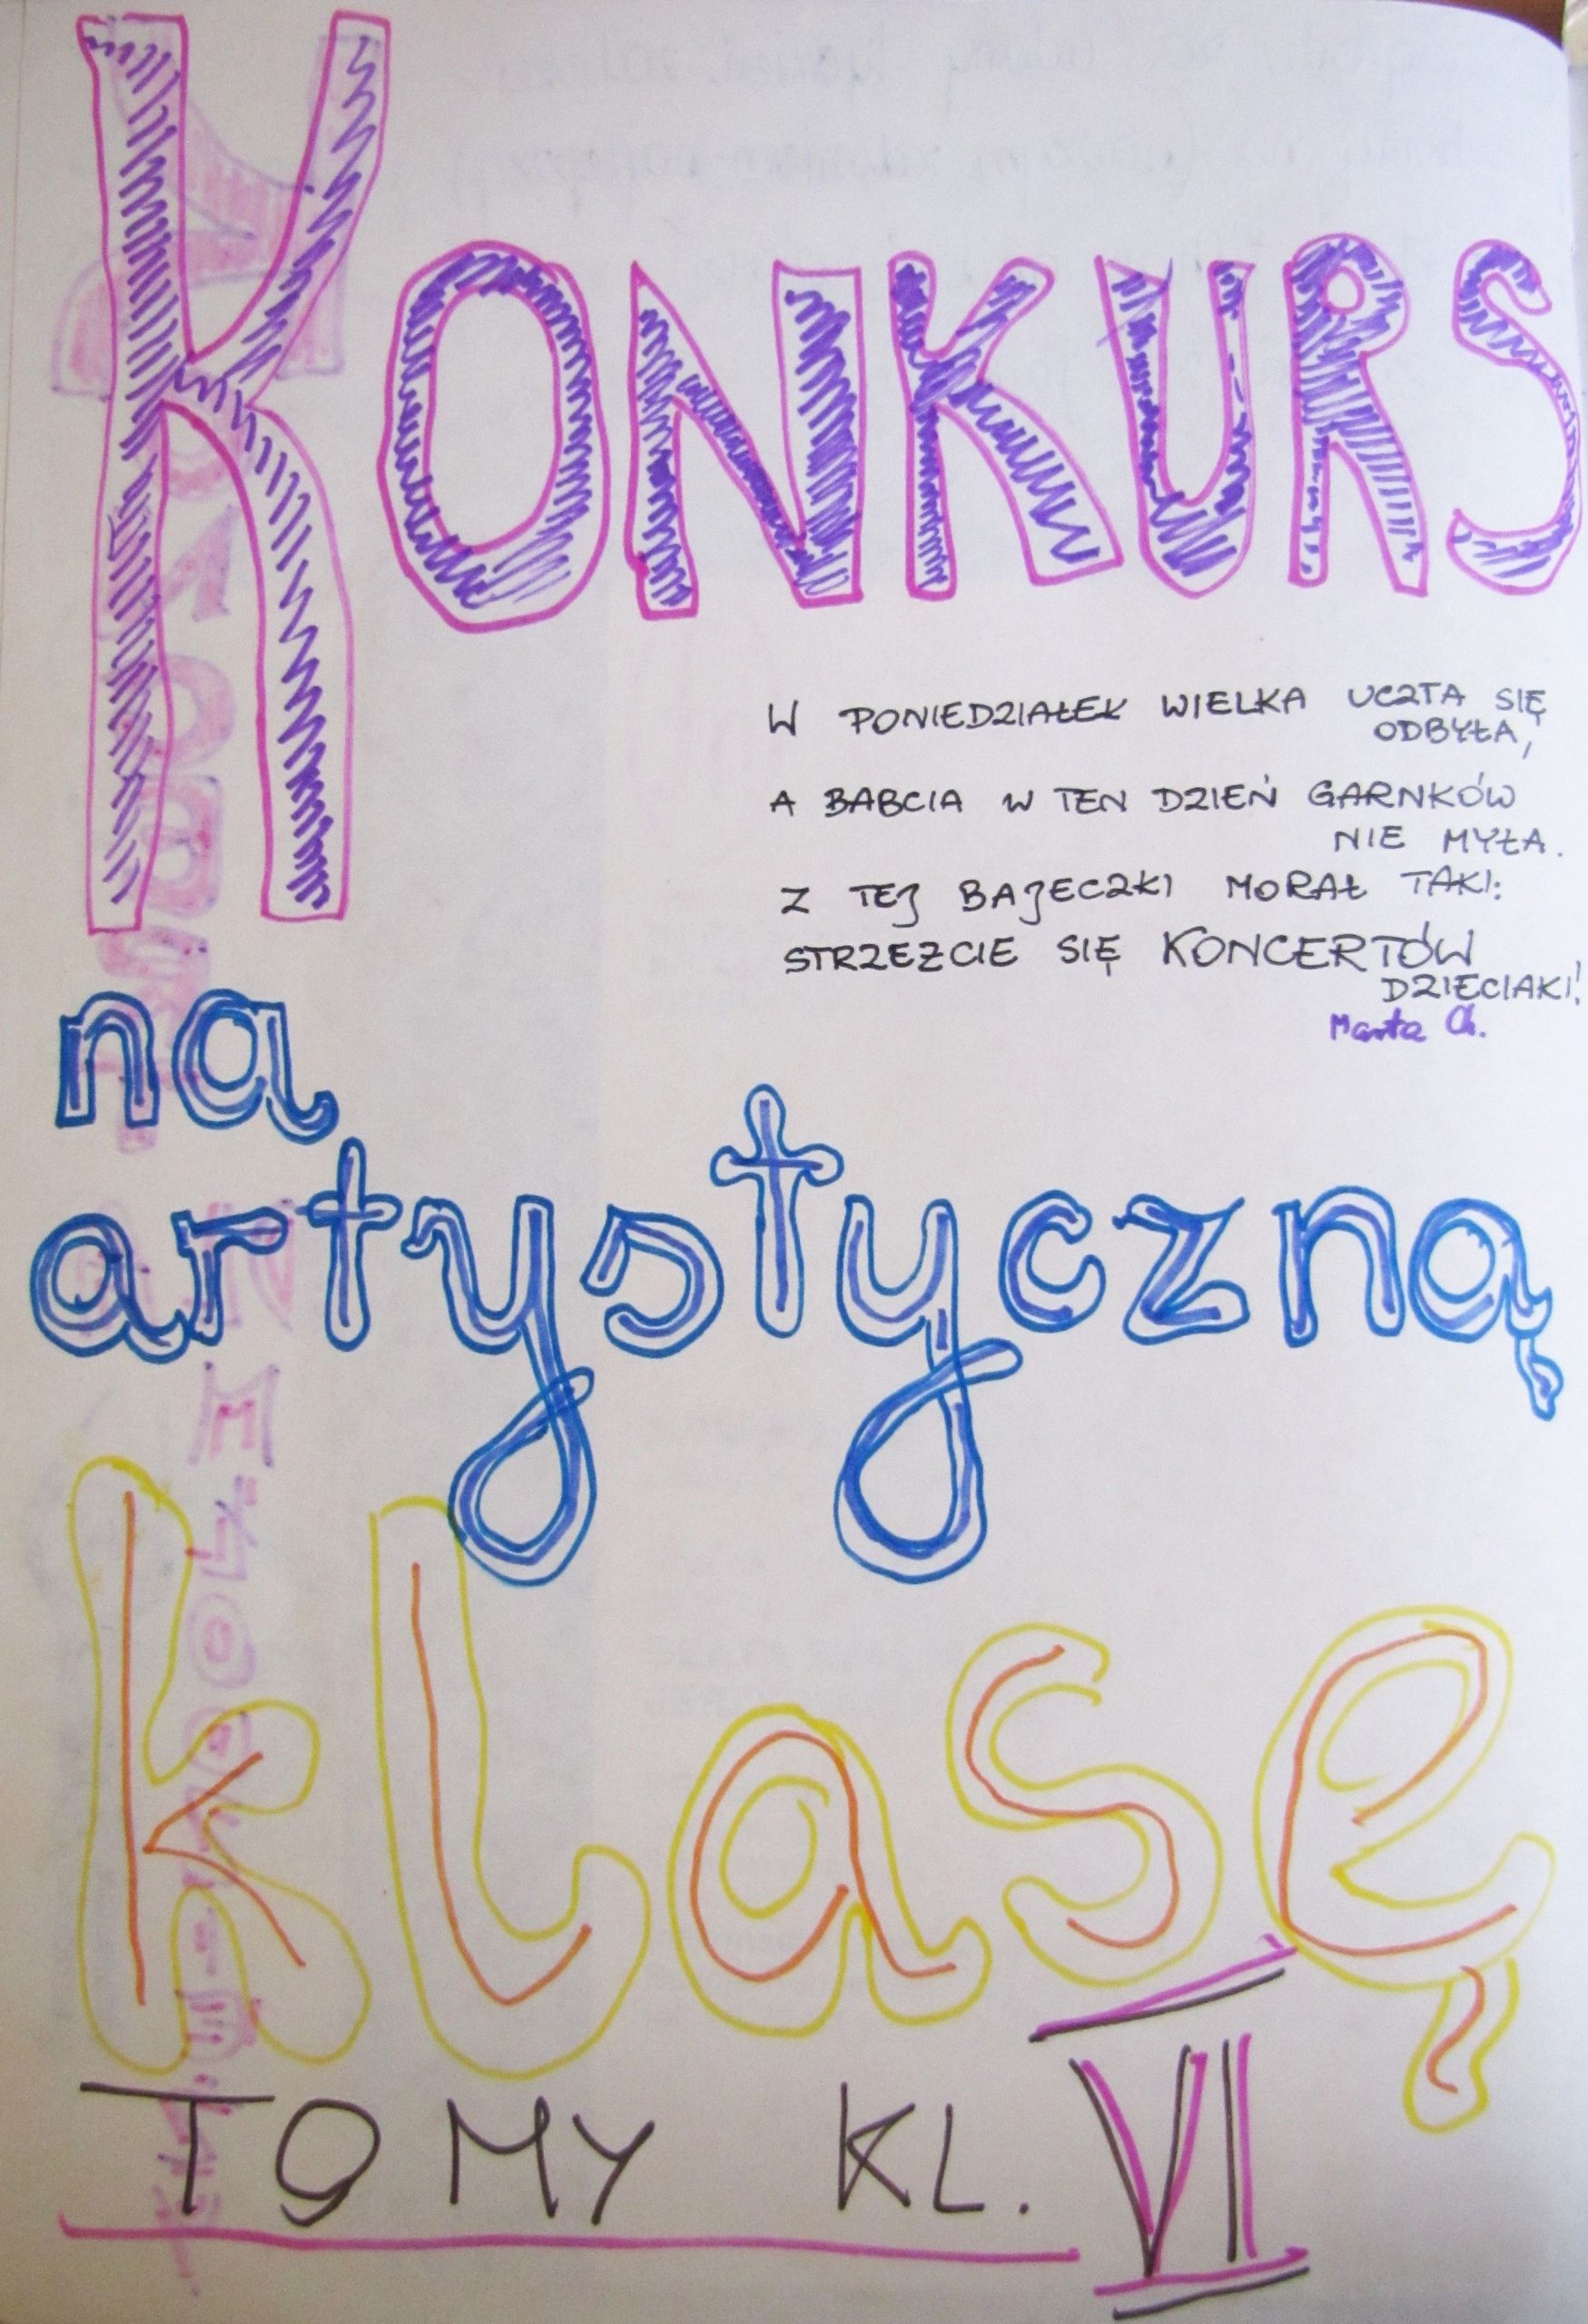 KONKURS
W PONIEDZIAŁEK WIELKA UCZTA SIĘ
ODBYŁA,
A BABCIA W TEN DZIEŃ GARNKÓW
NIE MYŁA.
Z TEJ BAJECZKI MORAŁ TAKI:
STRZEŻCIE SIĘ KONCERTÓW
DZIECIAKI!
Marta Ch.
na
artystyczną
klasę
TO MY KL. VI